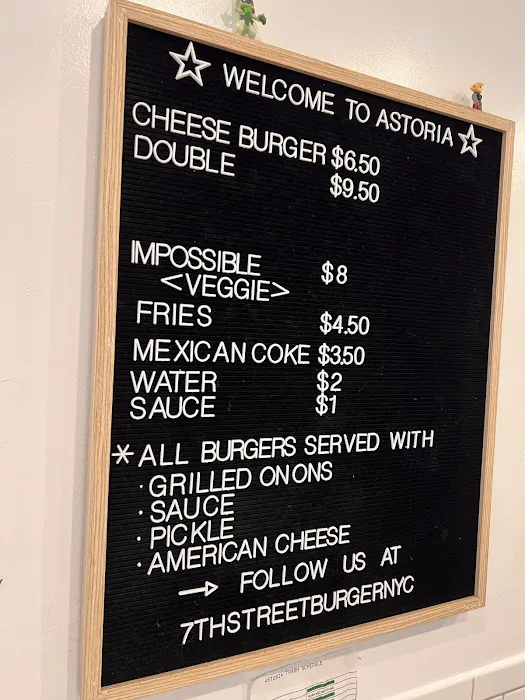 ☆ WELCOME TO ASTORIA ☆
CHEESE BURGER $6.50
DOUBLE $9.50
IMPOSSIBLE $8
<VEGGIE>
FRIES $4.50
MEXICAN COKE $3.50
WATER $2
SAUCE $1
*ALL BURGERS SERVED WITH
· GRILLED ONONS
· SAUCE
· PICKLE
· AMERICAN CHEESE
→ FOLLOW US AT
7THSTREETBURGERNYC
ASTORIA TRASH SCHEDULE